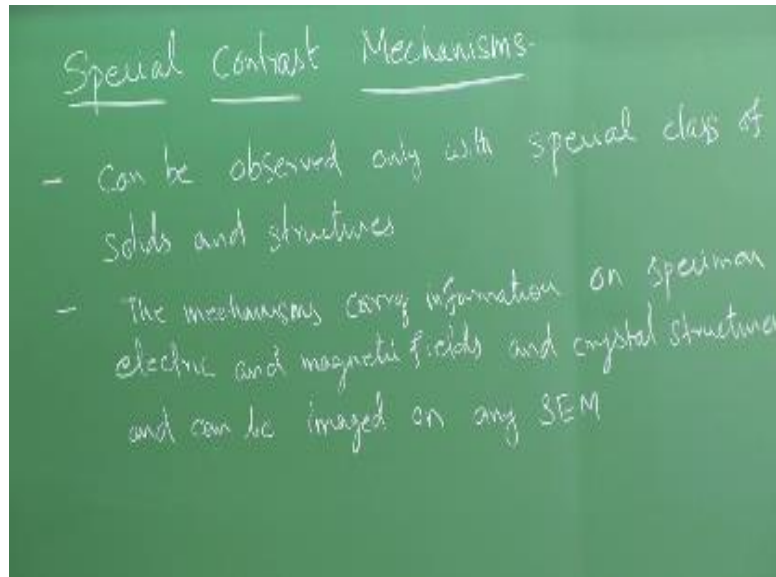 Special Contrast Mechanisms
- Can be observed only with special class of
solids and structures
- The mechanisms carry information on specimen
electric and magnetic fields and crystal structures
and can be imaged on any SEM